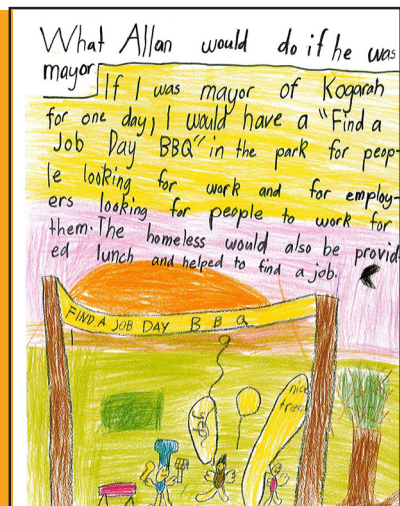 What Allan would do if he was
mayor
If I was mayor of Kogarah
for one day, I would have a "Find a
Job Day BBQ" in the park for peop-
le looking for work and for employ-
ers looking for people to work for
them. The homeless would also be provid-
ed lunch and helped to find a job.
FIND A JOB DAY BBQ
nice
tree